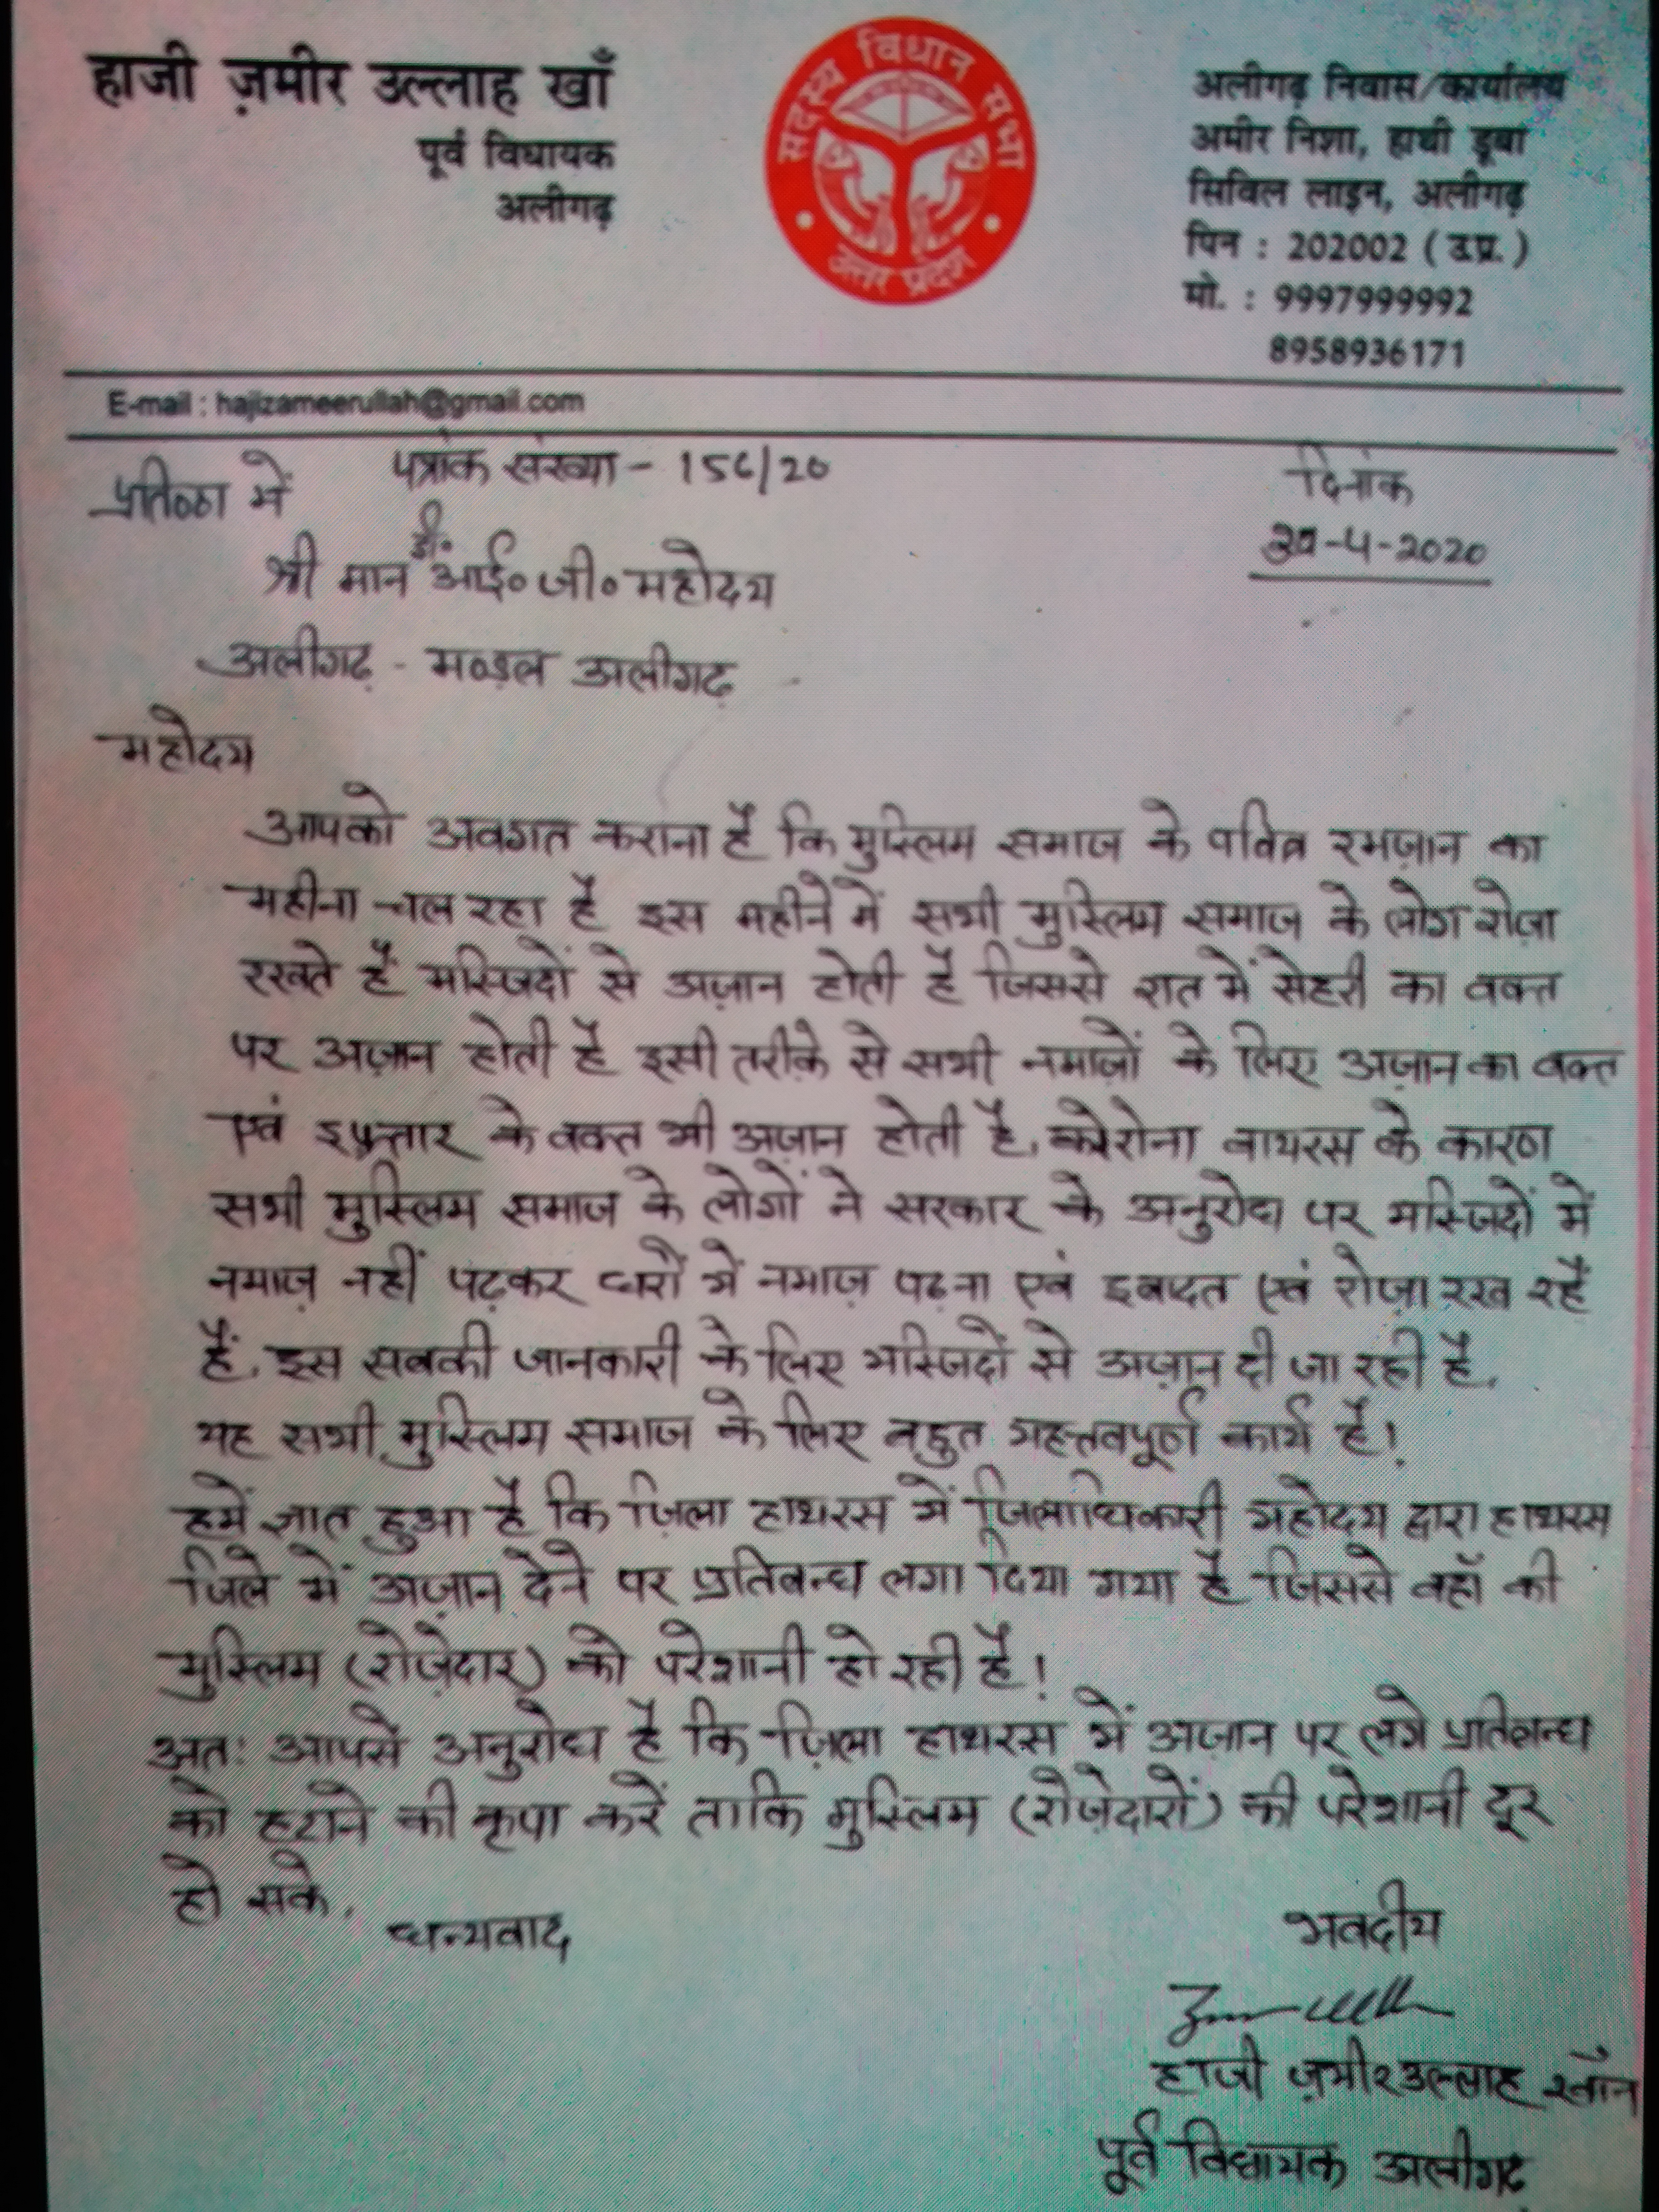 हाजी ज़मीर उल्लाह खाँ
पूर्व विधायक
अलीगढ़
सदस्य विधान सभा
उत्तर प्रदेश
अलीगढ़ निवास/कार्यालय
अमीर निशा, हाथी डूबा
सिविल लाइन, अलीगढ़
पिन : 202002 (उ.प्र.)
मो. : 9997999992
8958936171
E-mail : hajizameerullah@gmail.com
पत्रांक संख्या - 156/20
दिनांक
-4-2020
में
श्री मान डी. आई० जी० महोदय
अलीगढ़ - मण्डल अलीगढ़
महोदय
आपको अवगत कराना है कि मुस्लिम समाज के पवित्र रमज़ान का
महीना चल रहा है इस महीने में सभी मुस्लिम समाज के लोग रोज़ा
रखते हैं मस्जिदों से अज़ान होती है जिससे रात में सेहरी का वक्त
पर अज़ान होती है इसी तरीक़े से सभी नमाज़ों के लिए अज़ान का वक्त
एवं इफ़्तार के वक्त भी अज़ान होती है, कोरोना वायरस के कारण
सभी मुस्लिम समाज के लोगों ने सरकार के अनुरोध पर मस्जिदों में
नमाज़ नहीं पढ़कर घरों में नमाज़ पढ़ना एवं इबादत एवं रोज़ा रख रहे
हैं, इस सबकी जानकारी के लिए मस्जिदों से अज़ान दी जा रही है,
यह सभी मुस्लिम समाज के लिए बहुत महत्तवपूर्ण कार्य है!
हमें ज्ञात हुआ है कि ज़िला हाथरस में जिलाधिकारी महोदय द्वारा हाथरस
जिले में अज़ान देने पर प्रतिबन्ध लगा दिया गया है जिससे वहाँ की
मुस्लिम (रोज़ेदार) को परेशानी हो रही है!
अतः आपसे अनुरोध है कि ज़िला हाथरस में अज़ान पर लगे प्रतिबन्ध
को हटाने की कृपा करें ताकि मुस्लिम (रोज़ेदारों) की परेशानी दूर
हो सके,
धन्यवाद
भवदीय
हाजी ज़मीरउल्लाह खाँन
पूर्व विधायक अलीगढ़